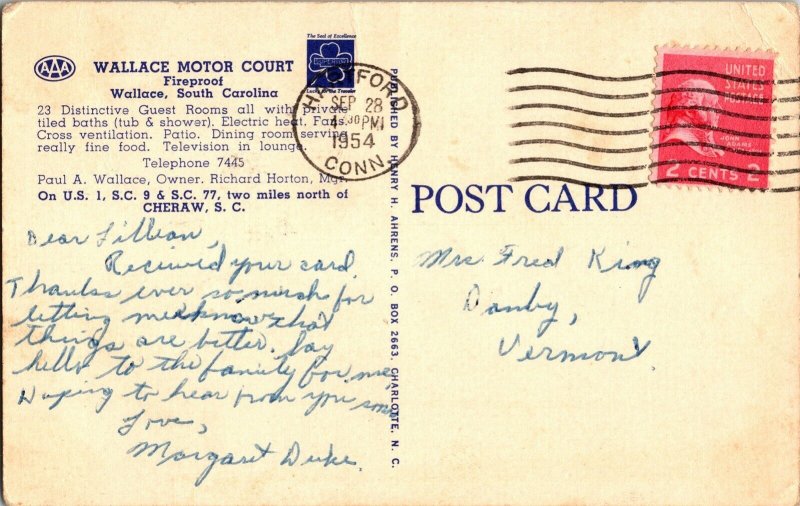 AAA
WALLACE MOTOR COURT
Fireproof
Wallace, South Carolina
23 Distinctive Guest Rooms all with private
tiled baths (tub & shower). Electric heat. Fans.
Cross ventilation. Patio. Dining room serving
really fine food. Television in lounge.
Telephone 7445
Paul A. Wallace, Owner. Richard Horton, Mgr.
On U.S. 1, S.C. 9 & S.C. 77, two miles north of
CHERAW, S. C.
The Seal of Excellence
SUPERIOR
for the Traveler
HARTFORD
SEP 28
4:30 PM
1954
CONN.
UNITED
STATES
POSTAGE
JOHN
ADAMS
2 CENTS 2
POST CARD
PUBLISHED BY HENRY H. AHRENS, P. O. BOX 2663, CHARLOTTE, N. C.
Dear Lillian,
Received your card.
Thanks ever so much for
letting me know that
things are better. Say
hello to the family for me.
Hoping to hear from you soon
Love,
Margaret Duke
Mrs Fred King
Danby,
Vermont